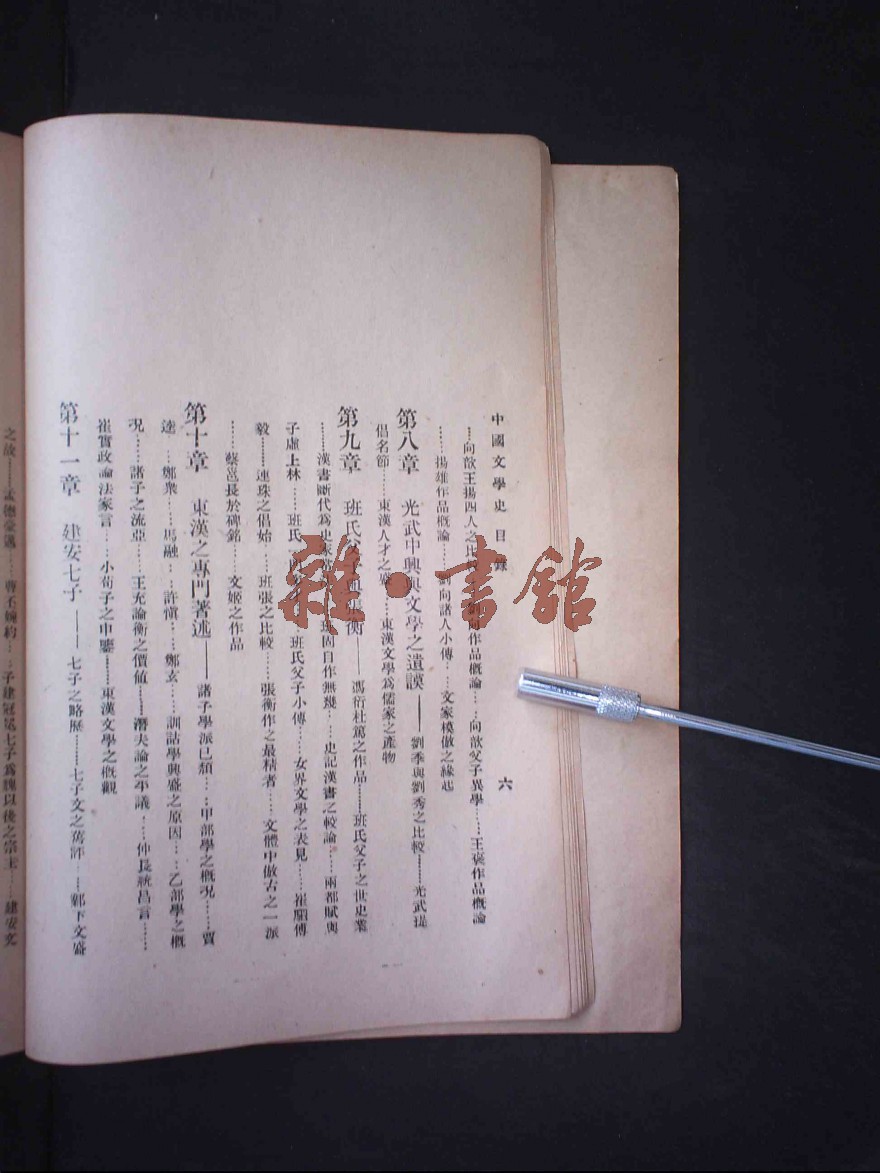 中國文學史 目錄 六
……向歆王揚四人之比較……向作品概論……向歆父子異學……王褒作品概論
……揚雄作品概論……劉向諸人小傳……文家模倣之緣起
第八章 光武中興與文學之遺謨——劉季與劉秀之比較……光武提
倡名節……東漢人才之盛……東漢文學爲儒家之產物
第九章 班氏父子與張衡——馮衍杜篤之作品……班氏父子之世史業
……漢書斷代爲史家……班固自作無幾……史記漢書之較論……兩都賦與
子虛上林……班氏之……班氏父子小傳……女界文學之表見……崔駰傅
毅……連珠之倡始……班張之比較……張衡作之最精者……文體中倣古之一派
……蔡邕長於碑銘……文姬之作品
第十章 東漢之專門著述——諸子學派已頹……甲部學之概况……賈
逵……鄭衆……馬融……許愼……鄭玄……訓詁學興盛之原因……乙部學之概
况……諸子之流亞……王充論衡之價値……潛夫論之平議……仲長統昌言……
崔實政論法家言……小荀子之申鑒……東漢文學之概觀
第十一章 建安七子——七子之略歷……七子文之舊評……鄴下文盛
之故……孟德豪邁……曹丕婉約……子建冠冕七子爲魏以後之宗主……建安文
雜·書館